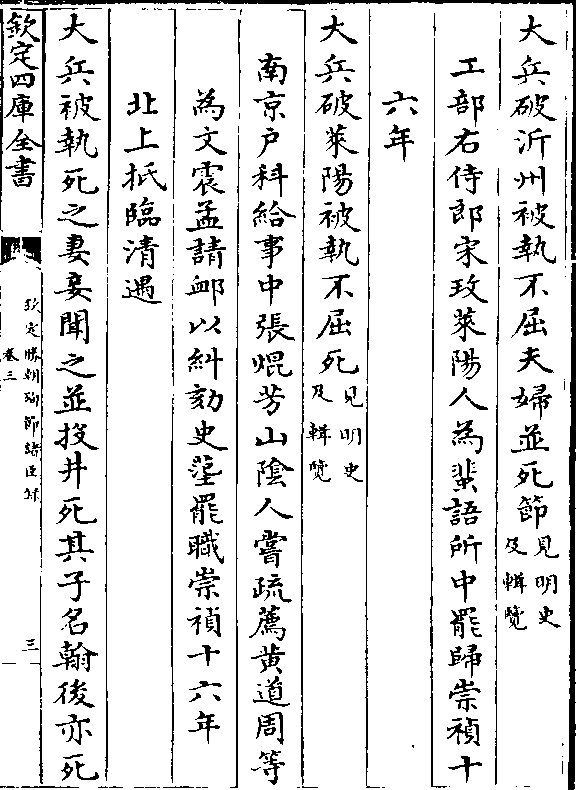 大兵破沂州被執不屈夫婦並死節見明史及輯覽
工部右侍郎宋玫萊陽人為蜚語所中罷歸崇禎十
六年
大兵破萊陽被執不屈死見明史及輯覽
南京户科給事中張焜芳山陰人嘗疏薦黄道周等
為文震孟請䘏以糾劾史𡎊罷職崇禎十六年
北上抵臨清遇
大兵被執死之妻妾聞之並投井死其子名翰後亦死
欽定四庫全書
欽定勝朝殉節諸臣録
卷三
三